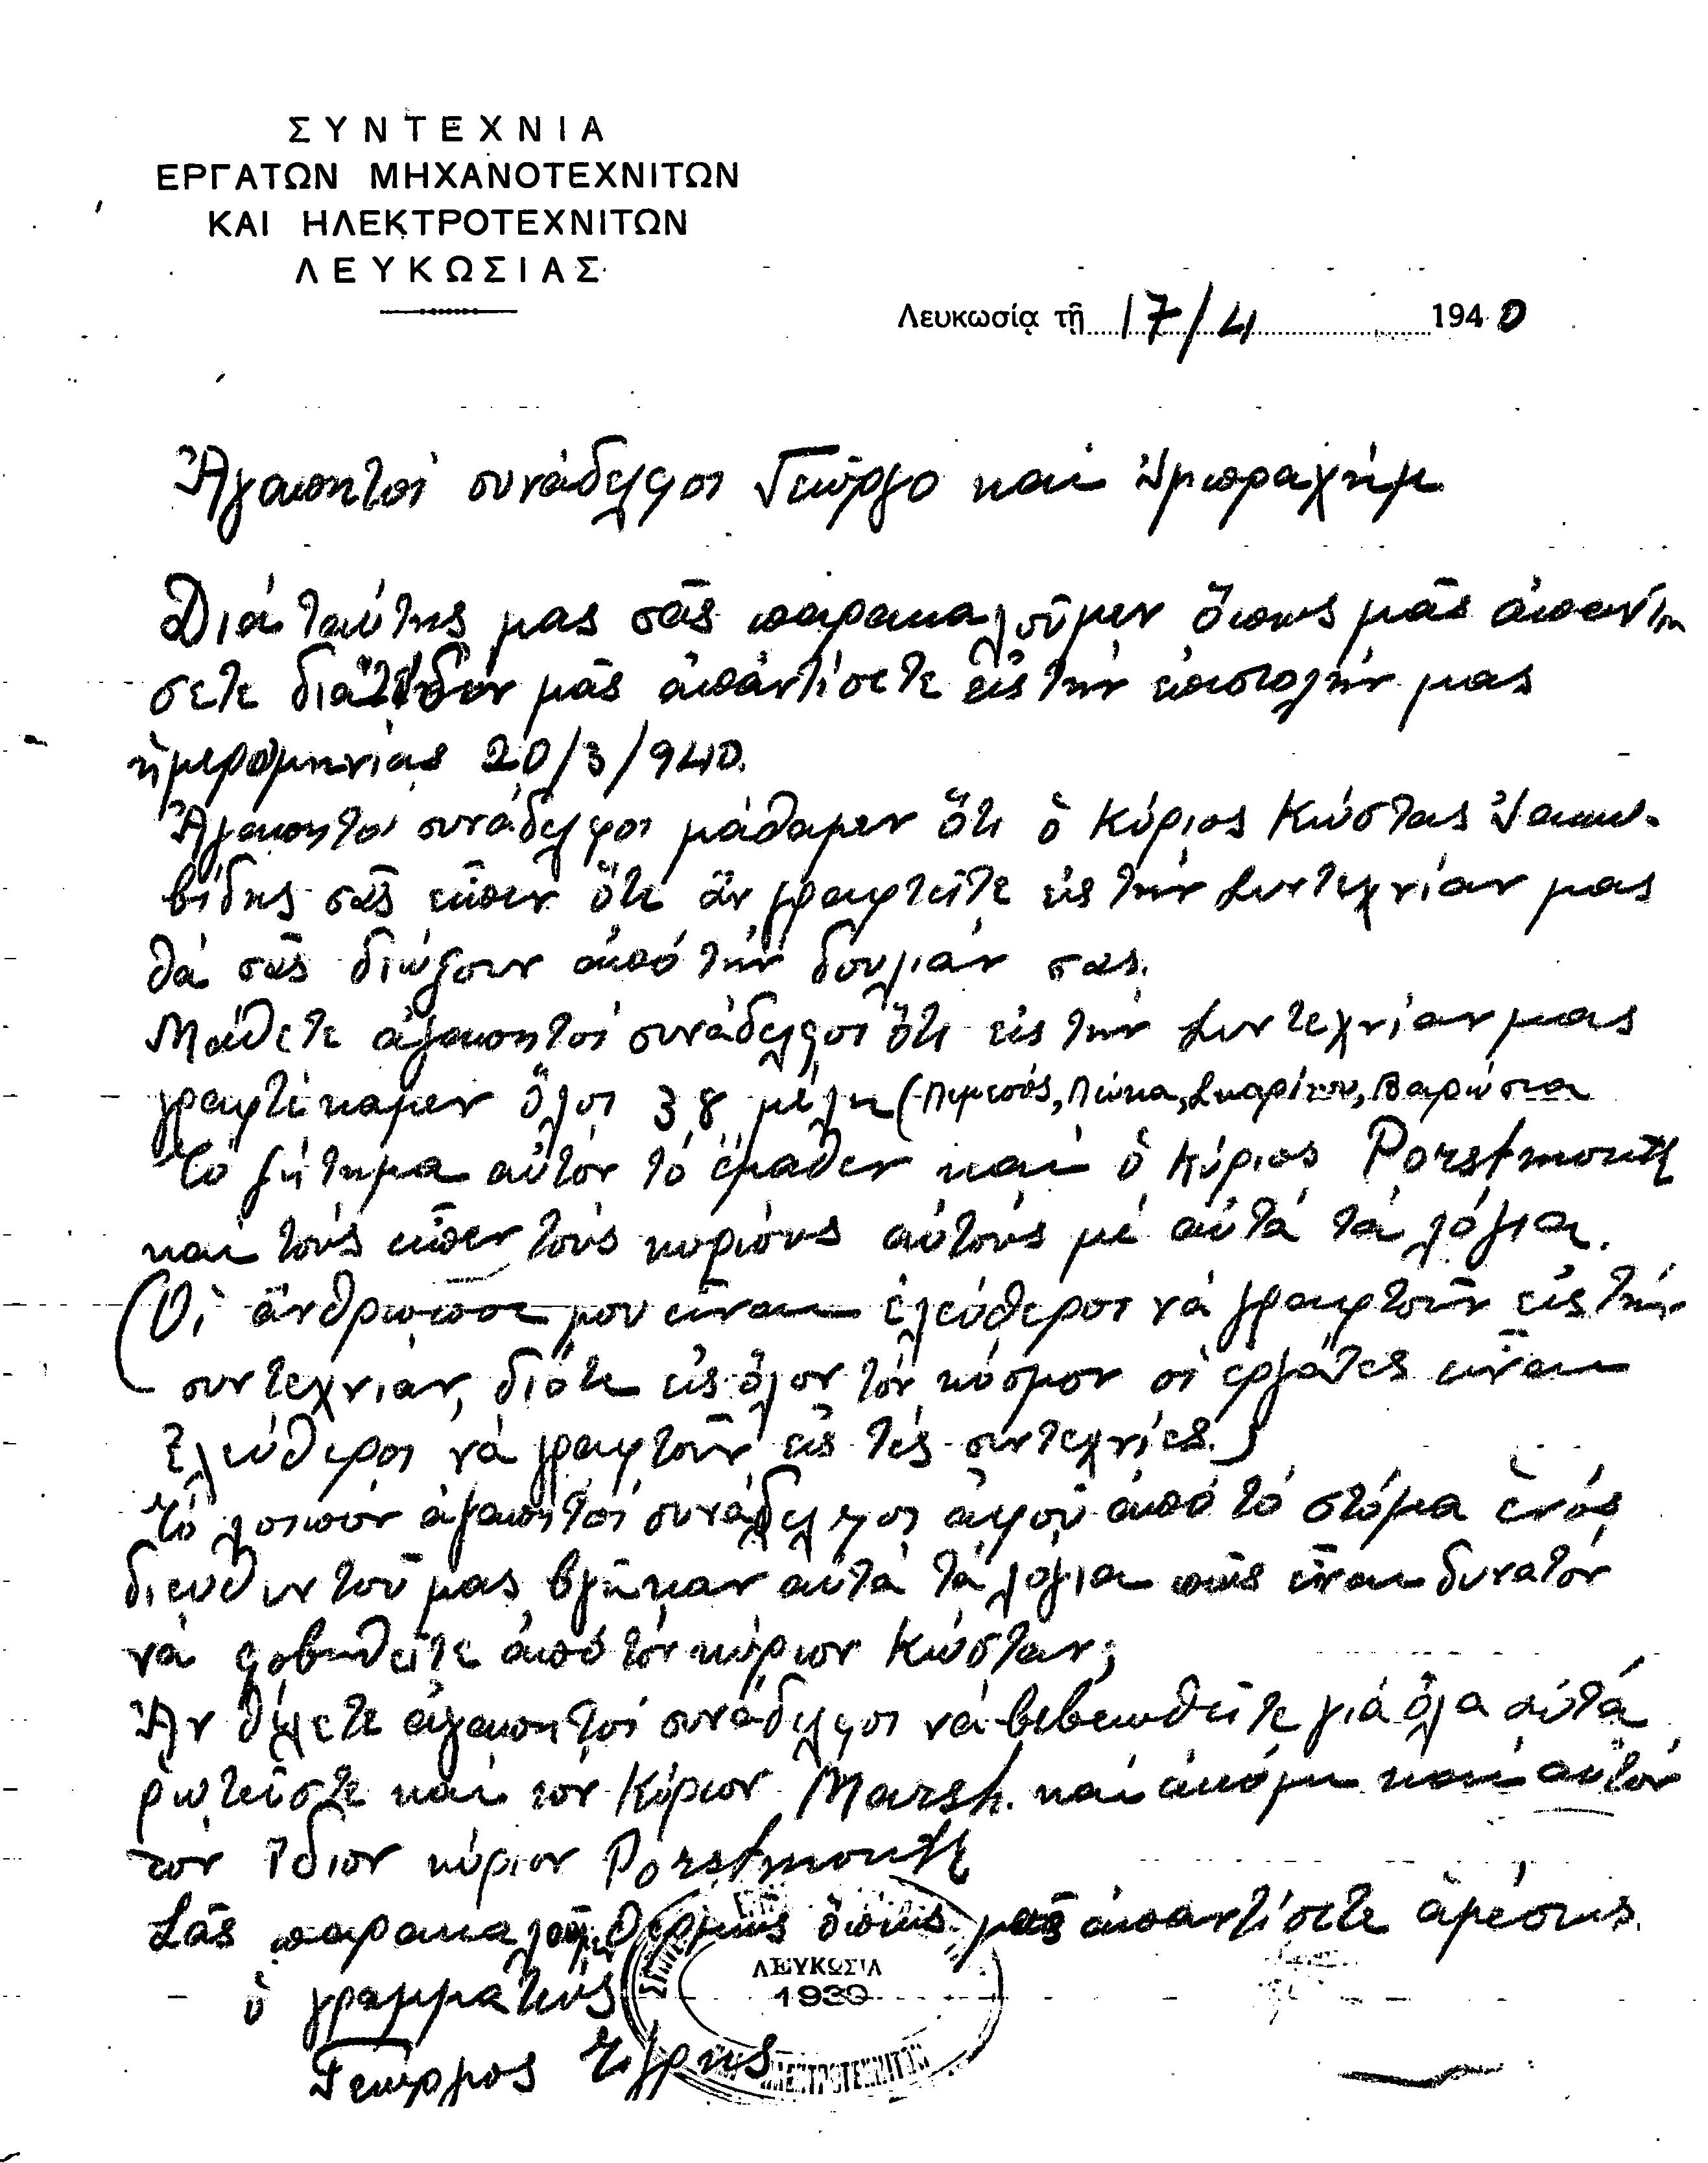 ΣΥΝΤΕΧΝΙΑ
ΕΡΓΑΤΩΝ ΜΗΧΑΝΟΤΕΧΝΙΤΩΝ
ΚΑΙ ΗΛΕΚΤΡΟΤΕΧΝΙΤΩΝ
ΛΕΥΚΩΣΙΑΣ
Λευκωσίᾳ τῇ 17/4 1940
Ἀγαπητοί συνάδελφοι Γεώργο και Ἰμπραχήμ
Διά ταύτης μας σᾶς παρακαλοῦμεν ὅπως μᾶς ἀπαντη
σετε διατί δέν μᾶς ἀπαντίσετε εἰς τήν ἐπιστολήν μας
ἡμερομηνίας 20/3/940.
Ἀγαπητοί συνάδελφοι μάθαμεν ὅτι ὁ Κύριος Κώστας Ἰακω-
βίδης σᾶς εἶπεν ὅτι ἄν γραφτεῖτε εἰς τήν Συντεχνίαν μας
θά σᾶς διώξουν ἀπό τήν δουλιάν σας.
Μάθετε ἀγαπητοί συνάδελφοι ὅτι εἰς τήν Συντεχνίαν μας
γραφτίκαμεν ὅλοι 38 μέλη (Λεμεσός, Λεύκα, Σκαρίνου, Βαρώσια
Τό ζήτημα αὐτόν τό ἔμαθεν και ὁ Κύριος Porstmouth
και τούς εἶπεν τούς κυρίους αὐτούς μέ αὐτά τά λόγια.
(Οἱ ἄνθρωποι μου εἶναι ἐλεύθεροι νά γραφτοῦν εἰς τήν
συντεχνίαν, διότι εἰς ὅλον τόν κόσμον οἱ ἐργάτες εἶναι
ἐλεύθεροι νά γραφτοῦν εἰς τές συντεχνίες.)
Τό λοιπόν ἀγαπητοί συνάδελφοι ἀφοῦ ἀπό τό στόμα ἑνός
διευθυντοῦ μας βγῆκαν αὐτά τά λόγια πῶς εἶναι δυνατόν
νά φοβηθεῖτε ἀπό τόν κύριον Κώσταν;
Ἄν θέλετε ἀγαπητοί συνάδελφοι νά βεβαιωθεῖτε γιά ὅλα αὐτά
ρωτεῖστε και τόν Κύριον Marsh. και ἀκόμη και αὐτόν
τόν ἴδιον κύριον Porstmouth
Σᾶς παρακαλοῦμεν θερμῶς ὅπως μᾶς ἀπαντίσετε ἀμέσως.
ὁ γραμματεύς
Γεώργιος
ΛΕΥΚΩΣΙΑ
1939
ΗΛΕΚΤΡΟΤΕΧΝΙΤΩΝ